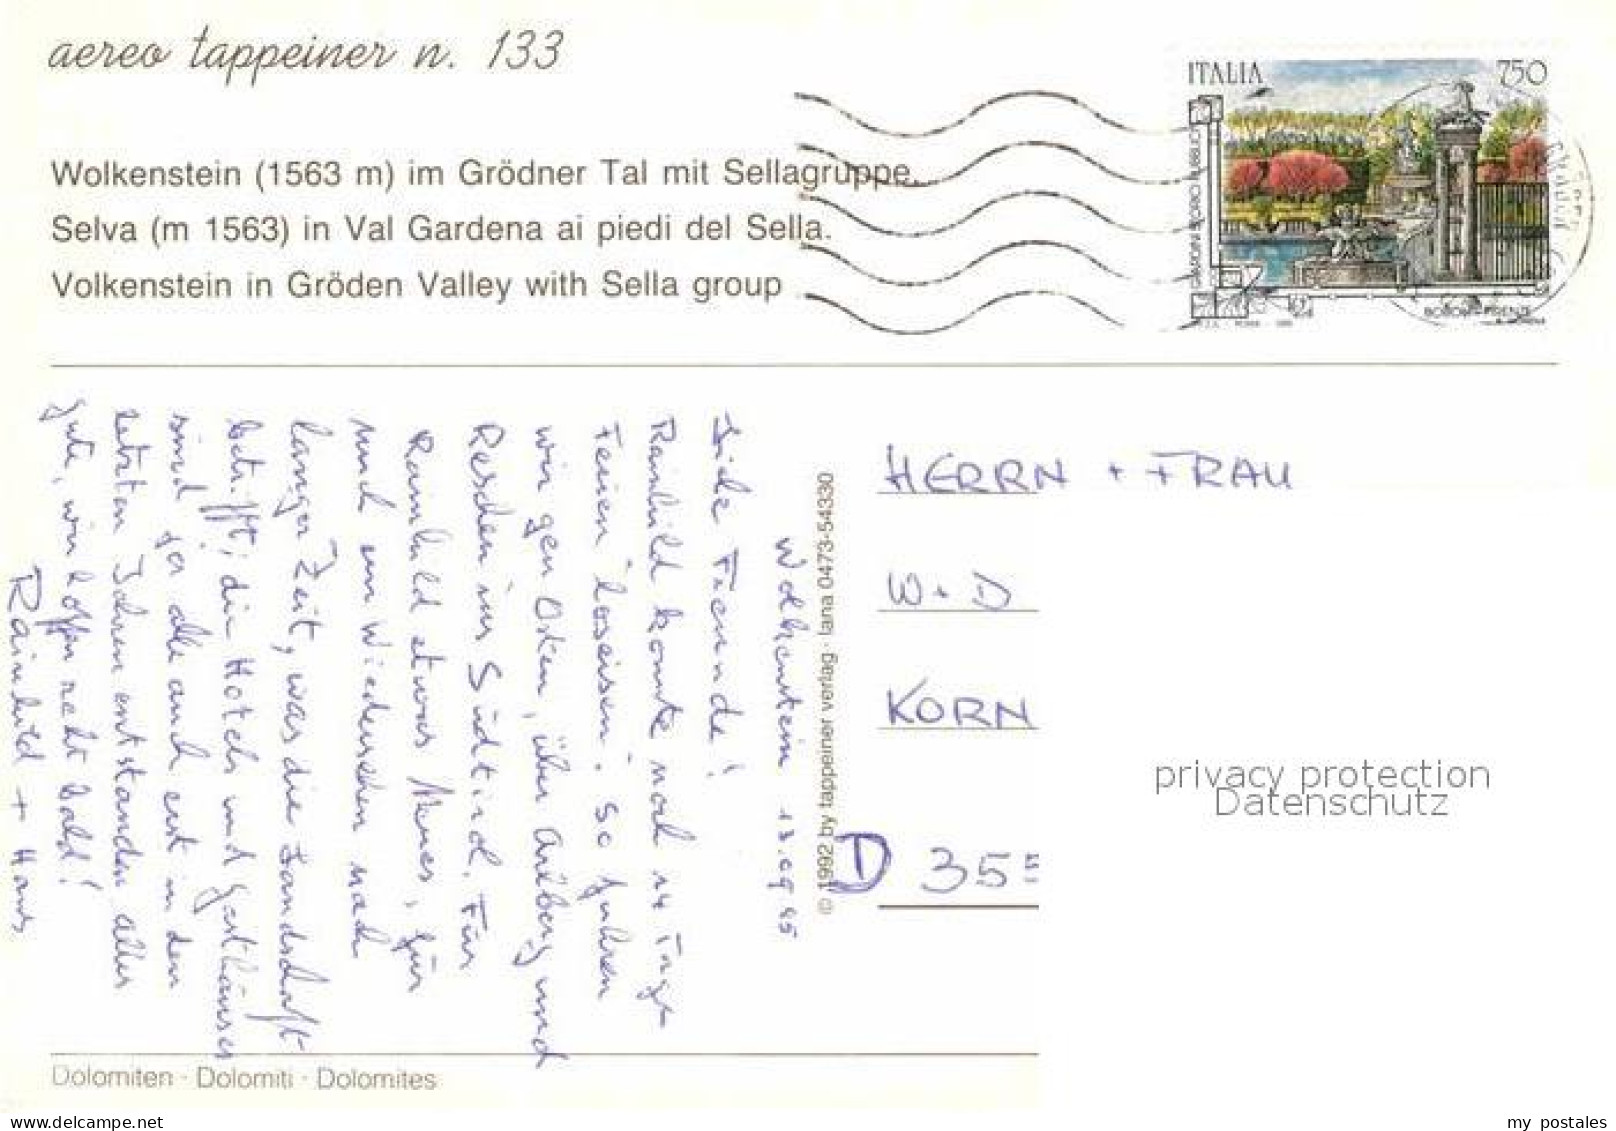 aereo tappeiner n. 133
ITALIA 750
Wolkenstein (1563 m) im Grödner Tal mit Sellagruppe.
Selva (m 1563) in Val Gardena ai piedi del Sella.
Volkenstein in Gröden Valley with Sella group
BOBOLI - FIRENZE
Wolkenstein 13.09.95
Liebe Freunde!
Rainhild konnte noch 14 Tage
Ferien "loseisen". So fuhren
wir gen Osten, über Arlberg und
Reschen ins Südtirol. Für
Rainhild etwas Neues, für
mich ein Wiedersehen nach
langer Zeit, was die Landschaft
betrifft; die Hotels und Gasthäuser
sind ja alle auch erst in den
letzten Jahren entstanden. Alles
Gute, wir hoffen recht bald!
Rainhild + Hans
© 1992 by tappeiner verlag · lana 0473-54330
HERRN + FRAU
W + D
KORN
D 35
privacy protection
Datenschutz
Dolomiten · Dolomiti · Dolomites
my postales